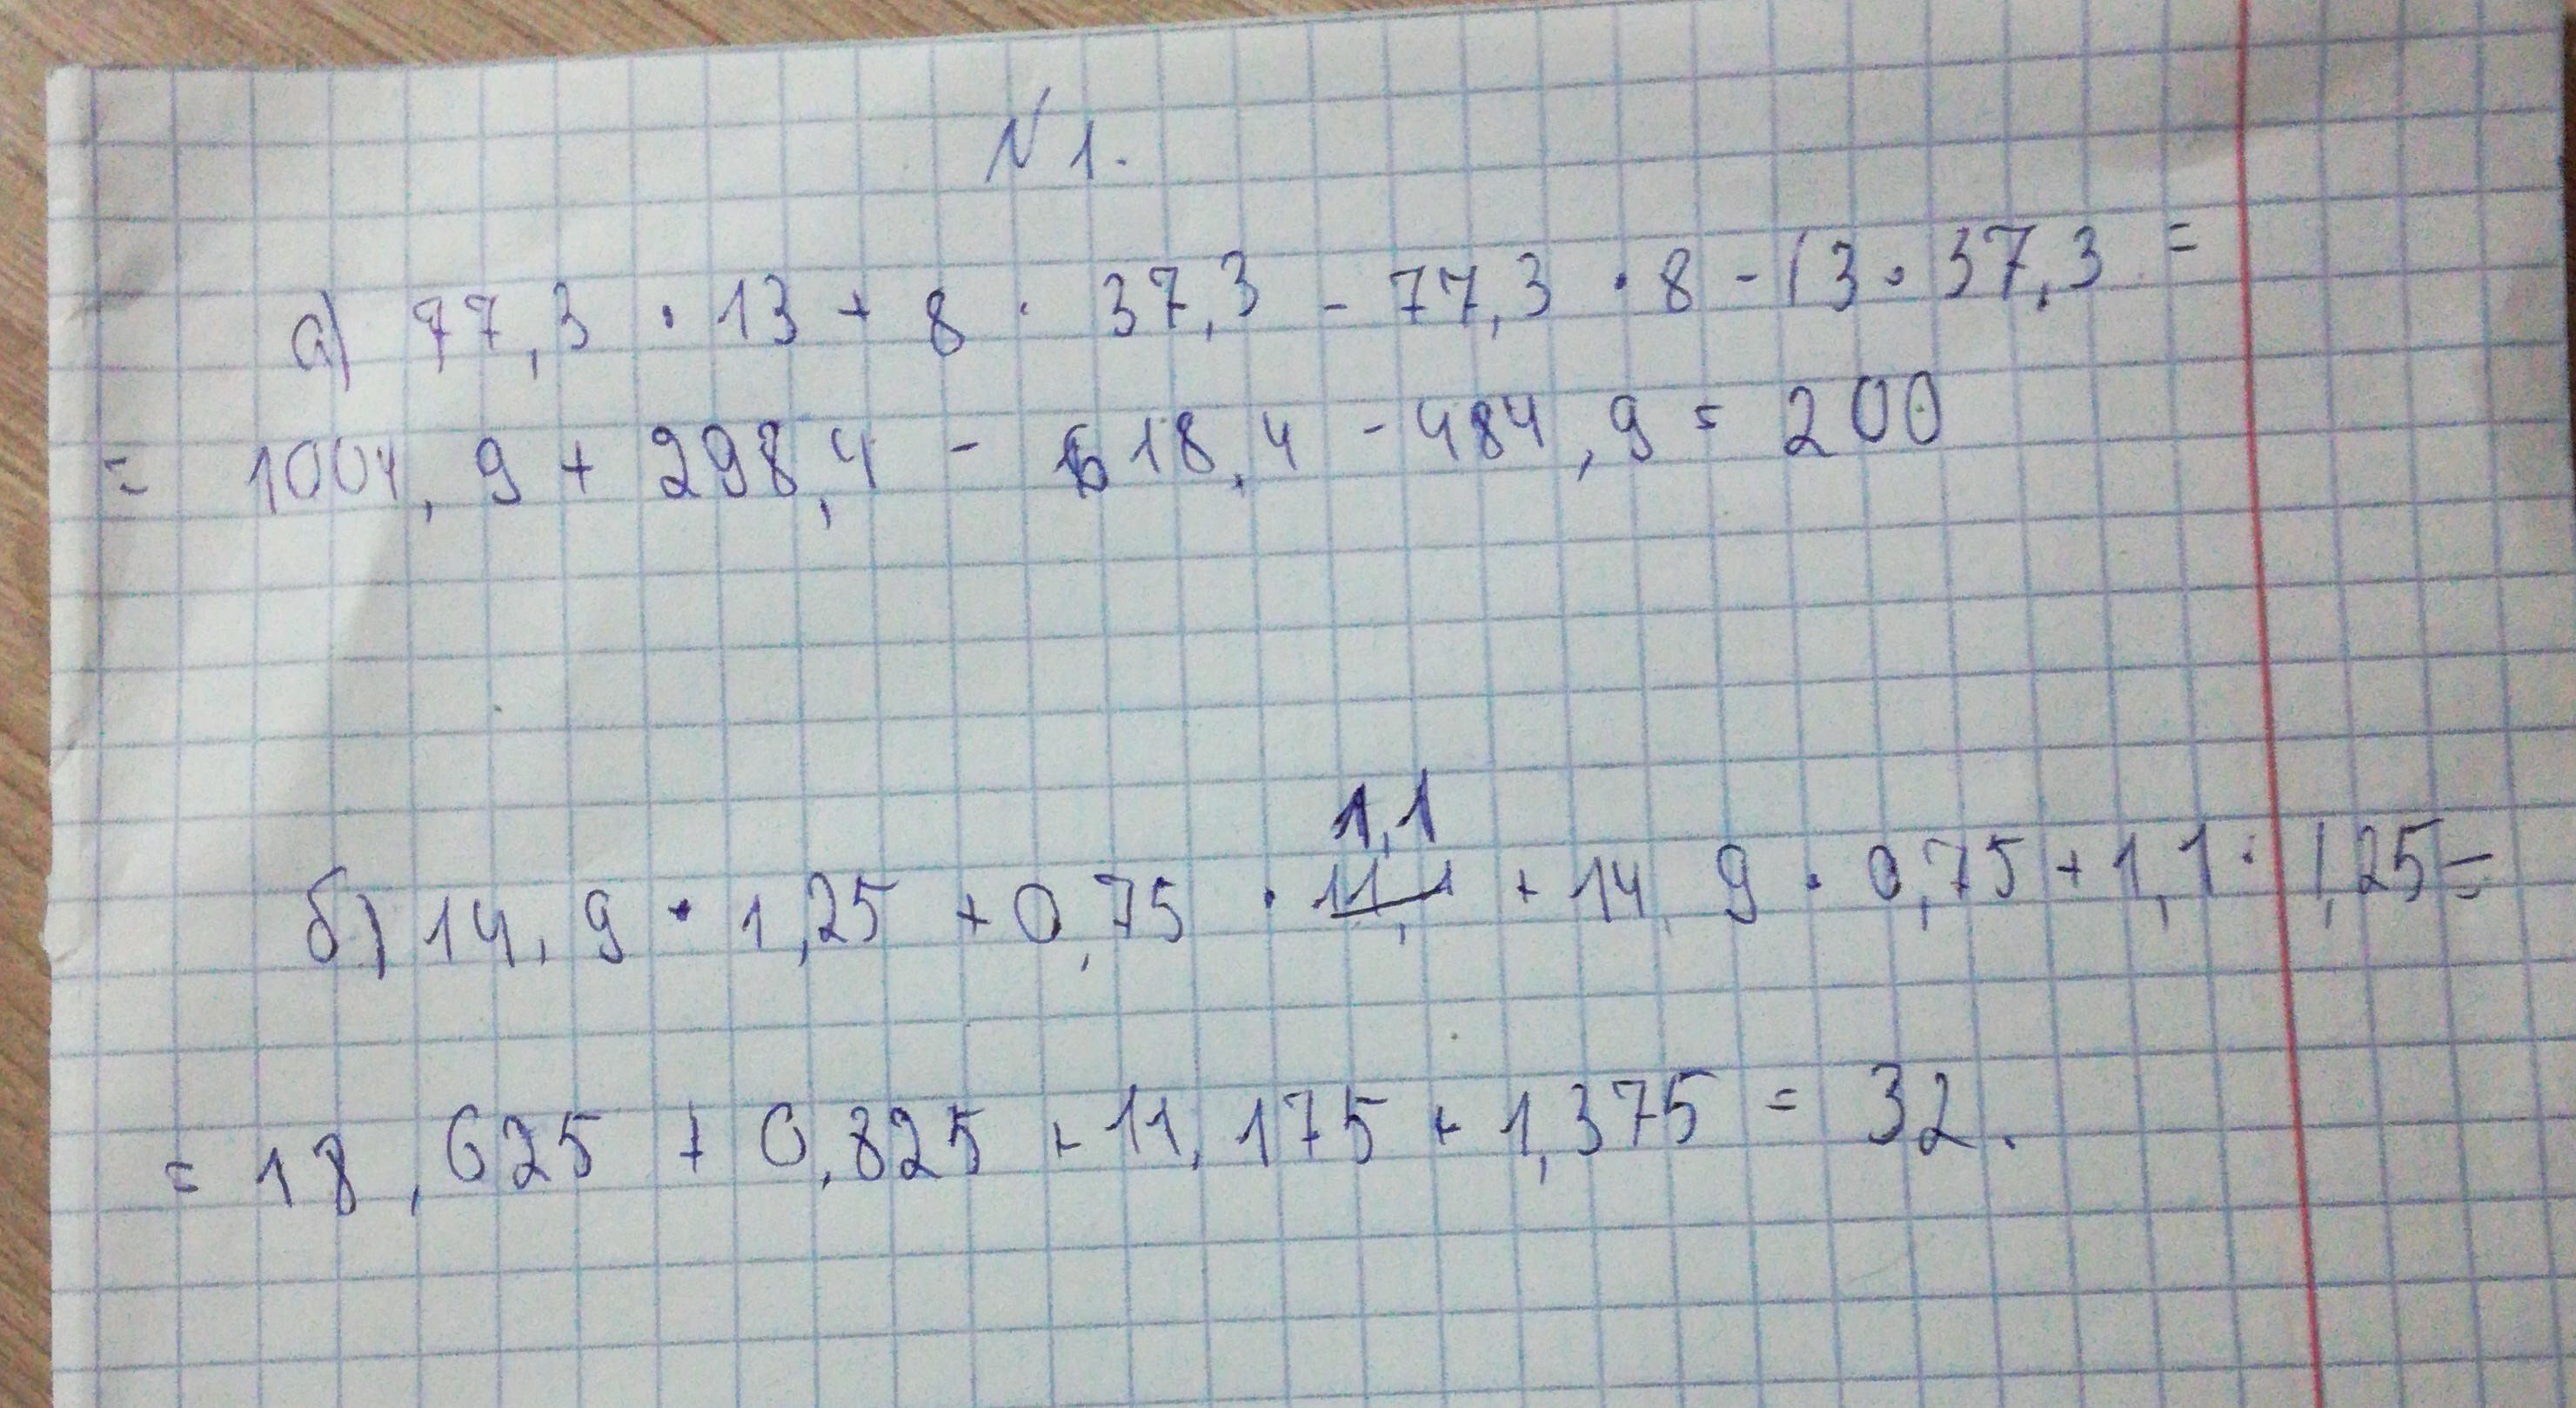 N 1.
а) 77,3 · 13 + 8 · 37,3 - 77,3 · 8 - 13 · 37,3 =
= 1004,9 + 298,4 - 618,4 - 484,9 = 200
1,1
б) 14,9 · 1,25 + 0,75 · 11,1 + 14,9 · 0,75 + 1,1 · 1,25 =
= 18,625 + 0,825 + 11,175 + 1,375 = 32.